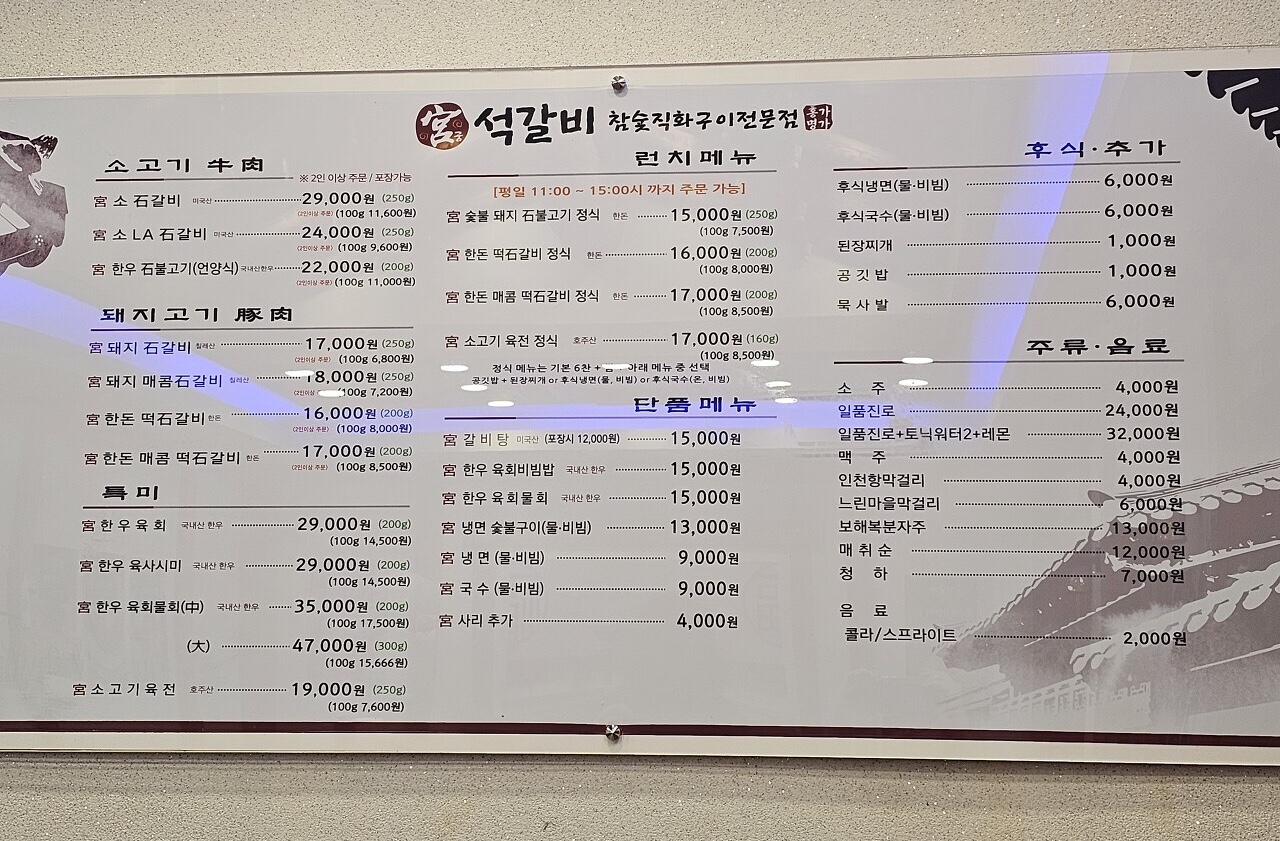 宮궁 석갈비 참숯직화구이전문점
소고기 牛肉
※ 2인 이상 주문 / 포장가능
宮 소 석갈비 미국산 29,000원 (250g)
(2인이상 주문) (100g 11,600원)
宮 소 LA 석갈비 미국산 24,000원 (250g)
(2인이상 주문) (100g 9,600원)
宮 한우 석불고기(언양식) 국내산한우 22,000원 (200g)
(2인이상 주문) (100g 11,000원)
돼지고기 豚肉
宮 돼지 석갈비 칠레산 17,000원 (250g)
(2인이상 주문) (100g 6,800원)
宮 돼지 매콤석갈비 칠레산 18,000원 (250g)
(2인이상 주문) (100g 7,200원)
宮 한돈 떡석갈비 한돈 16,000원 (200g)
(2인이상 주문) (100g 8,000원)
宮 한돈 매콤 떡석갈비 한돈 17,000원 (200g)
(2인이상 주문) (100g 8,500원)
특미
宮 한우육회 국내산 한우 29,000원 (200g)
(100g 14,500원)
宮 한우 육사시미 국내산 한우 29,000원 (200g)
(100g 14,500원)
宮 한우 육회물회(中) 국내산 한우 35,000원 (200g)
(100g 17,500원)
(大) 47,000원 (300g)
(100g 15,666원)
宮 소고기육전 호주산 19,000원 (250g)
(100g 7,600원)
런치메뉴
[평일 11:00 ~ 15:00시 까지 주문 가능]
宮 숯불 돼지 석불고기 정식 한돈 15,000원 (250g)
(100g 7,500원)
宮 한돈 떡석갈비 정식 한돈 16,000원 (200g)
(100g 8,000원)
宮 한돈 매콤 떡석갈비 정식 한돈 17,000원 (200g)
(100g 8,500원)
宮 소고기 육전 정식 호주산 17,000원 (160g)
(100g 8,500원)
정식 메뉴는 기본 6찬 + 아래 메뉴 중 선택
공깃밥 + 된장찌개 or 후식냉면(물, 비빔) or 후식국수(온, 비빔)
단품메뉴
宮 갈비탕 미국산 (포장시 12,000원) 15,000원
宮 한우 육회비빔밥 국내산 한우 15,000원
宮 한우 육회물회 국내산 한우 15,000원
宮 냉면 숯불구이(물·비빔) 13,000원
宮 냉 면 (물·비빔) 9,000원
宮 국 수 (물·비빔) 9,000원
宮 사리 추가 4,000원
후식·추가
후식냉면(물·비빔) 6,000원
후식국수(물·비빔) 6,000원
된장찌개 1,000원
공깃밥 1,000원
묵사발 6,000원
주류·음료
소 주 4,000원
일품진로 24,000원
일품진로+토닉워터2+레몬 32,000원
맥 주 4,000원
인천항막걸리 4,000원
느린마을막걸리 6,000원
보해복분자주 13,000원
매취순 12,000원
청 하 7,000원
음 료
콜라/스프라이트 2,000원